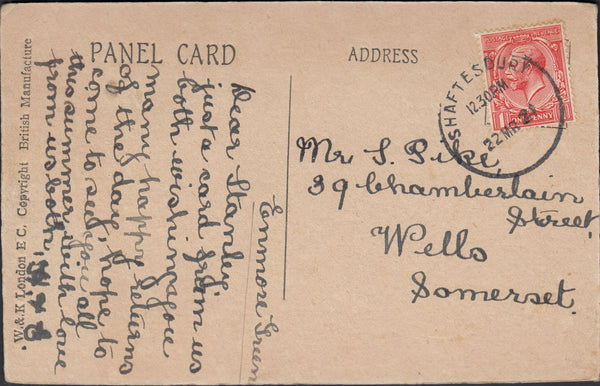 PANEL CARD
ADDRESS
Enmore Green
Dear Stanley
just a card from us
both wishing you
many happy returns
of the day, hope to
come to see you all
this summer, with love
from us both.
W. & K. London E C. Copyright British Manufacture
POSTAGE REVENUE
1 ONE PENNY
SHAFTESBURY
12.30PM
22 MR 21
Mr S. Pike,
39 Chamberlain
Street,
Wells
Somerset.